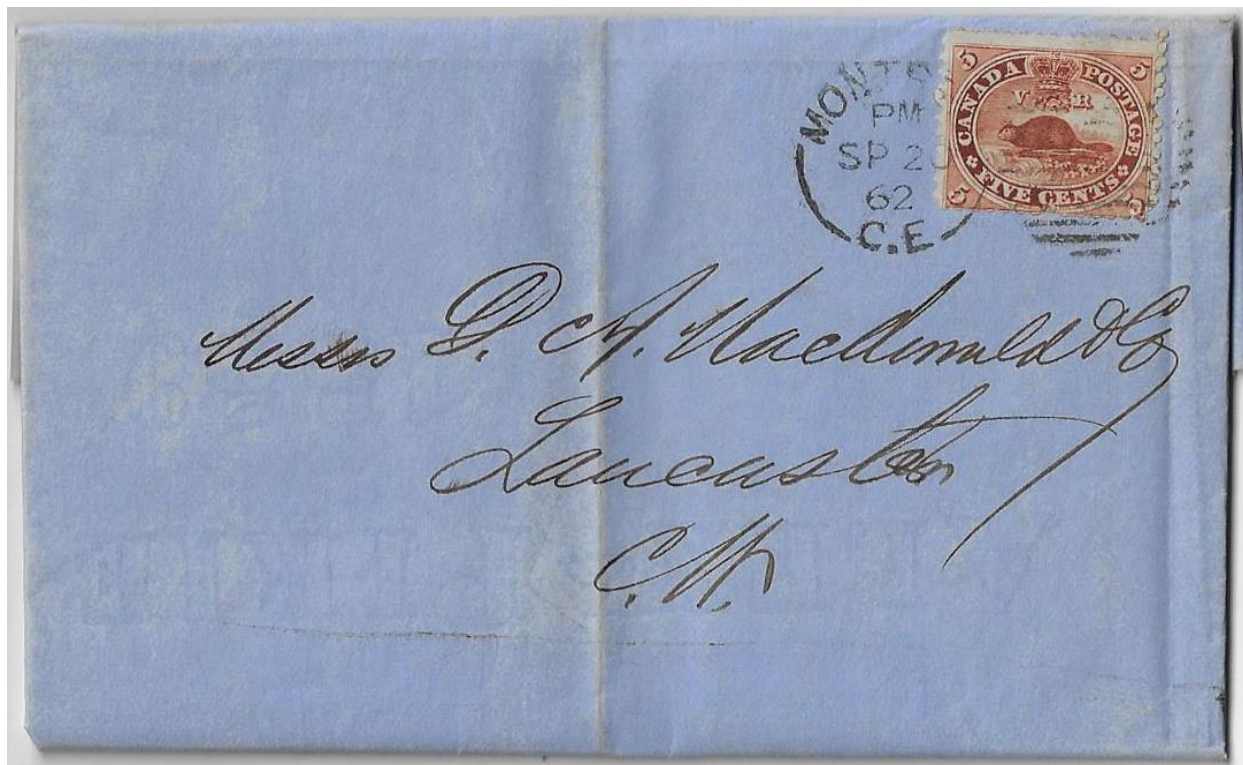 MONTR
PM
SP 2
62
C.E
5 5
CANADA POSTAGE
V R
FIVE CENTS
5 5
Messrs D. A. Macdonald & Co
Lancaster
C.W.